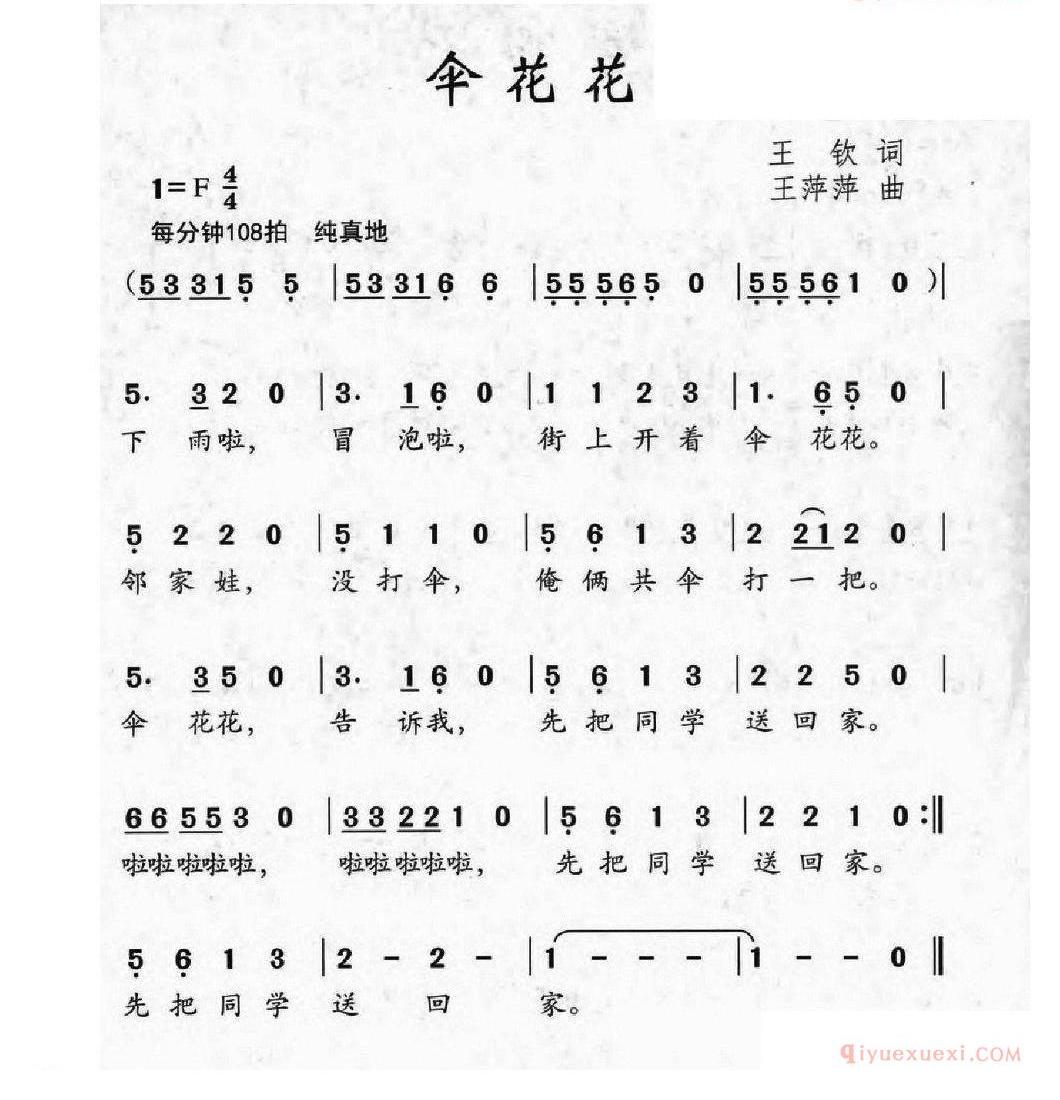 qiyuexuexi.COM
伞花花
王 钦 词
1=F 4/4
王萍萍 曲
每分钟108拍 纯真地
(5 3 3 1 5̣ 5̣ | 5 3 3 1 6̣ 6̣ | 5̣ 5̣ 5̣ 6̣ 5̣ 0 | 5̣ 5̣ 5̣ 6̣ 1 0 )|
5· 3 2 0 | 3· 1 6̣ 0 | 1 1 2 3 | 1· 6̣ 5̣ 0 |
下 雨啦, 冒 泡啦, 街上开着 伞 花花。
5̣ 2 2 0 | 5̣ 1 1 0 | 5̣ 6̣ 1 3 | 2 2 1 2 0 |
邻家娃, 没打伞, 俺俩共伞 打一把。
5· 3 5 0 | 3· 1 6̣ 0 | 5̣ 6̣ 1 3 | 2 2 5 0 |
伞 花花, 告 诉我, 先把同学 送回家。
6 6 5 5 3 0 | 3 3 2 2 1 0 | 5̣ 6̣ 1 3 | 2 2 1 0 :‖
啦啦啦啦啦, 啦啦啦啦啦, 先把同学 送回家。
5̣ 6̣ 1 3 | 2 - 2 - | 1 - - - | 1 - - 0 ‖
先把同学 送 回 家。
qiyuexuexi.COM